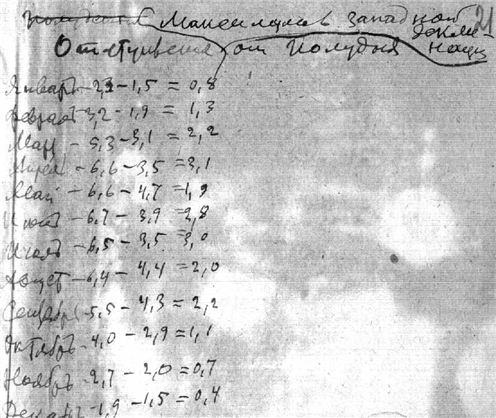 Максимумов западной 21
Отступления от Полудня
Январь - 2,3 - 1,5 = 0,8
Февраль - 3,2 - 1,9 = 1,3
Март - 5,3 - 3,1 = 2,2
Апрель - 6,6 - 3,5 = 3,1
Май - 6,6 - 4,7 = 1,9
Июнь - 6,7 - 3,9 = 2,8
Июль - 6,5 - 3,5 = 3,0
Август - 6,4 - 4,4 = 2,0
Сентябрь - 5,5 - 4,3 = 2,2
Октябрь - 4,0 - 2,9 = 1,1
Ноябрь - 2,7 - 2,0 = 0,7
Декабрь - 1,9 - 1,5 = 0,4